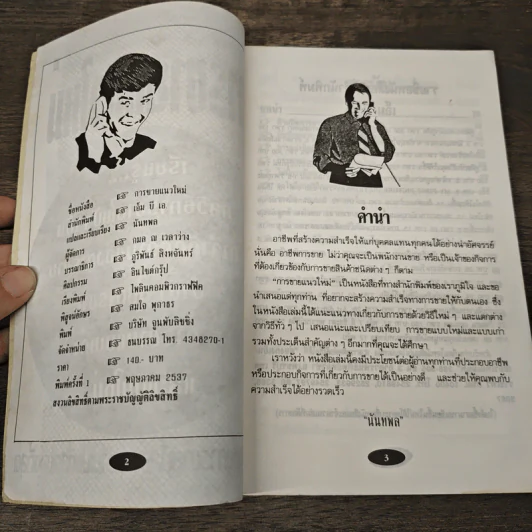 ชื่อหนังสือ การขายแนวใหม่
สำนักพิมพ์ เอ็ม บี เอ
แปลและเรียบเรียง นันทพล
ผู้จัดการ กมล ณ เวลาว่าง
บรรณาธิการ ภูริพันธ์ สิงหจันทร์
ศิลปกรรม อินไซด์กรุ๊ป
เรียงพิมพ์ โพลินคอมพิวกราฟฟิค
พิสูจน์อักษร สมใจ พุกวธร
พิมพ์ บริษัท จูนพับลิชชิ่ง
จัดจำหน่าย ธนบรรณ โทร. 4348270-1
ราคา 140.- บาท
พิมพ์ครั้งที่ 1 พฤษภาคม 2537
สงวนลิขสิทธิ์ตามพระราชบัญญัติลิขสิทธิ์
2
คำนำ
อาชีพที่สร้างความสำเร็จให้แก่บุคคลแทบทุกคนได้อย่างน่าอัศจรรย์
นั่นคือ อาชีพการขาย ไม่ว่าคุณจะเป็นพนักงานขาย หรือเป็นเจ้าของกิจการ
ที่ต้องเกี่ยวข้องกับการขายสินค้าชนิดต่าง ๆ ก็ตาม
"การขายแนวใหม่" เป็นหนังสือที่ทางสำนักพิมพ์ของเราภูมิใจ และขอ
นำเสนอแด่ทุกท่าน ที่อยากจะสร้างความสำเร็จทางการขายให้กับตนเอง ซึ่ง
ในหนังสือเล่มนี้ได้แนะแนวทางเกี่ยวกับการขายด้วยวิธีใหม่ ๆ และแตกต่าง
จากวิธีทั่ว ๆ ไป เสนอแนะและเปรียบเทียบ การขายแบบใหม่และแบบเก่า
รวมทั้งประเด็นสำคัญต่าง ๆ อีกมากที่คุณจะได้ศึกษา
เราหวังว่า หนังสือเล่มนี้คงมีประโยชน์ต่อผู้อ่านทุกท่านที่ประกอบอาชีพ
หรือประกอบกิจการที่เกี่ยวกับการขายได้เป็นอย่างดี และช่วยให้คุณพบกับ
ความสำเร็จได้อย่างรวดเร็ว
"นันทพล"
3